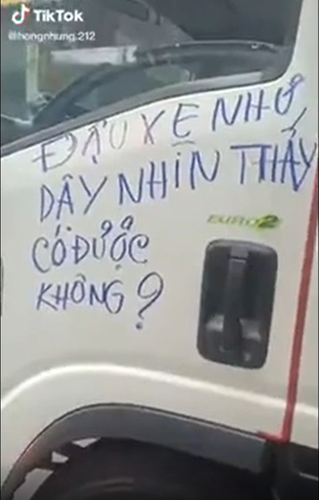 TikTok
@hongnhung.212
ĐẬU XE NHƯ
DÂY NHÌN THẤY
CÓ ĐƯỢC
KHÔNG?
EURO 2